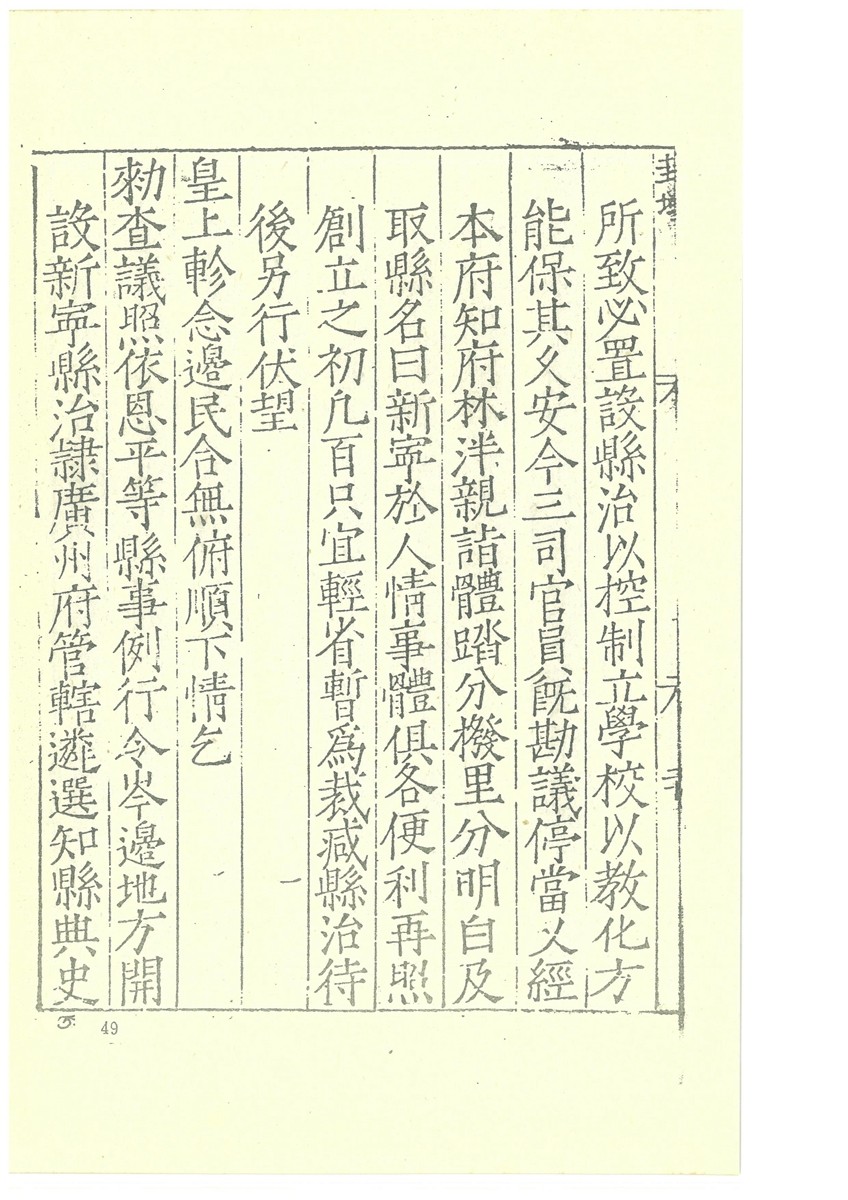 封域
所致必置設縣治以控制立學校以教化方
能保其久安今三司官員既勘議停當又經
本府知府林泮親詣體踏分撥里分明白及
取縣名曰新寧於人情事體俱各便利再照
創立之初凡百只宜輕省暫爲裁減縣治待
後另行伏望
皇上軫念邊民合無俯順下情乞
勑查議照依恩平等縣事例行令岑邊地方開
設新寧縣治隷廣州府管轄遴選知縣典史
49